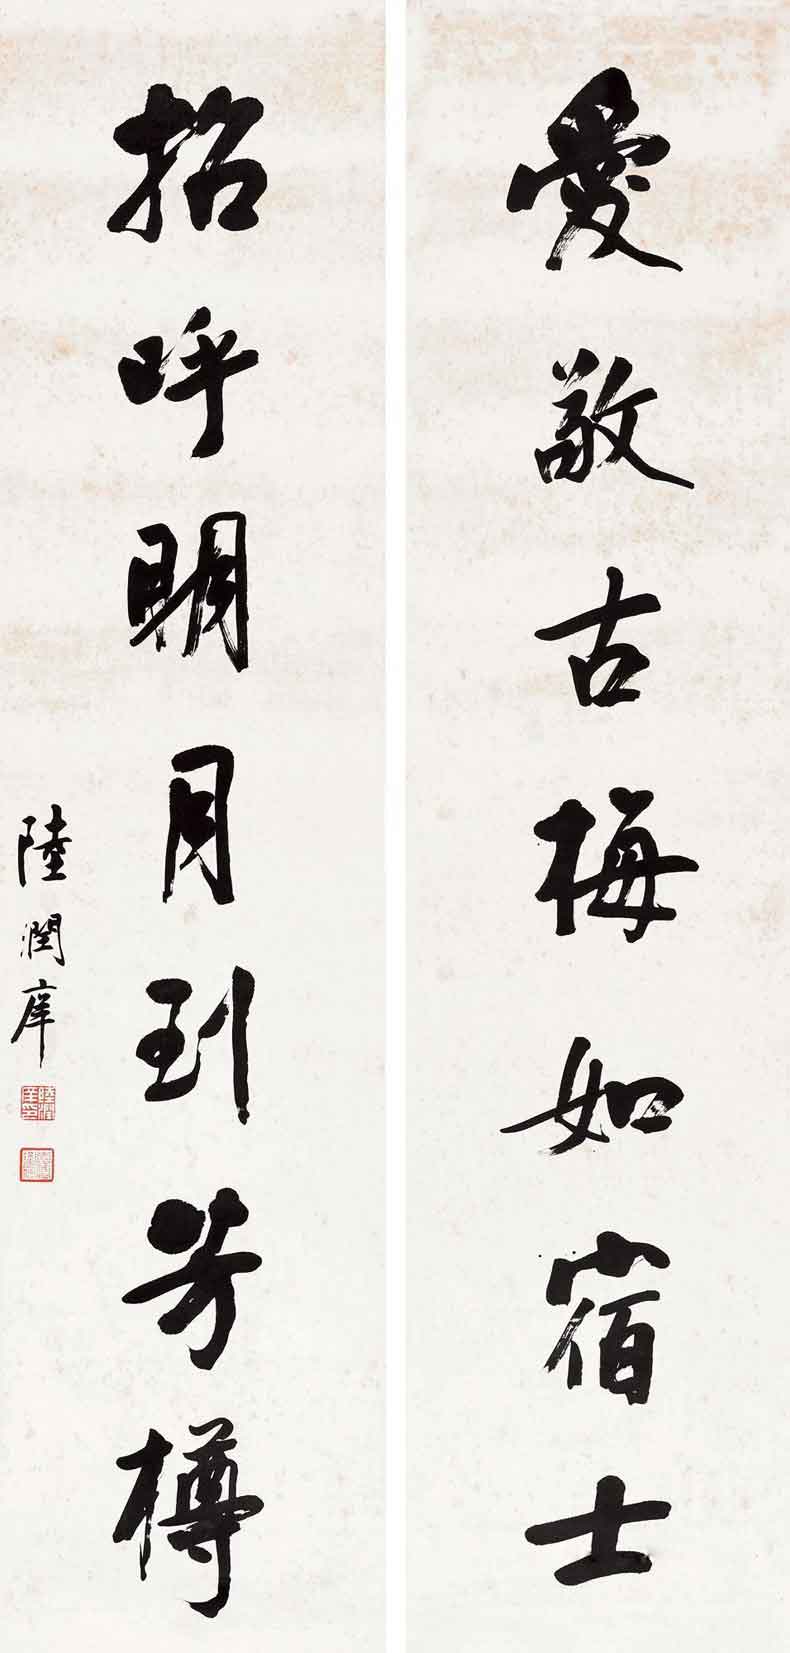 愛敬古梅如宿士
招呼明月到芳樽
陸潤庠
陸潤庠印